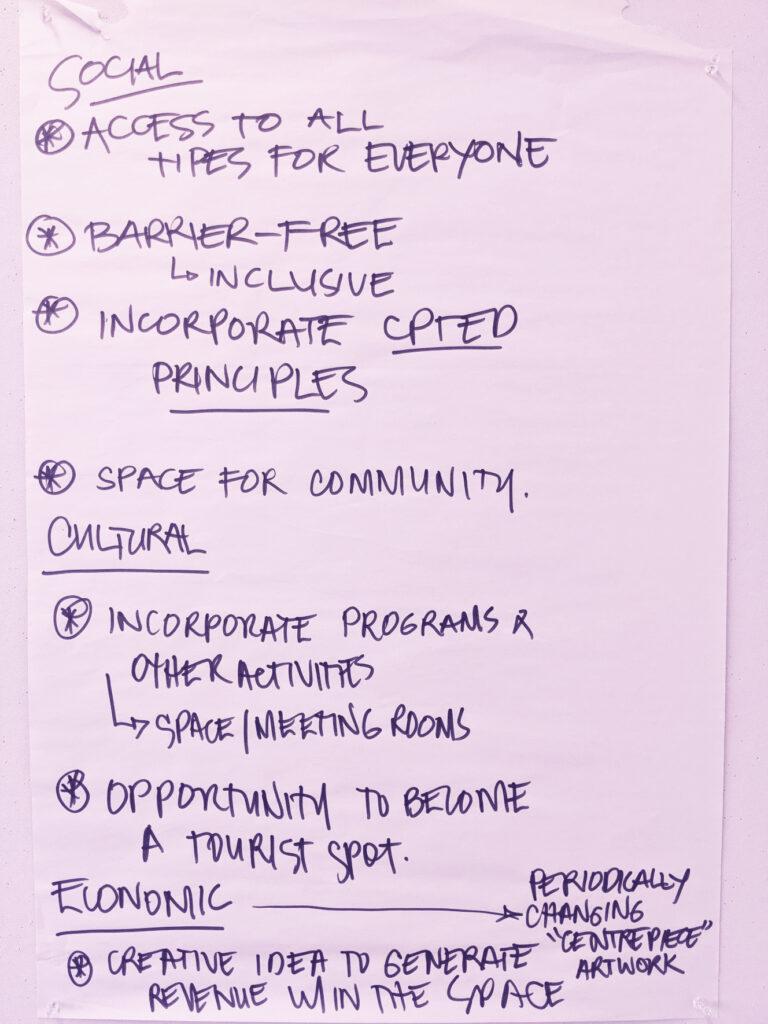 SOCIAL
ACCESS TO ALL
TIPES FOR EVERYONE
BARRIER-FREE
↳ INCLUSIVE
INCORPORATE CPTED
PRINCIPLES
SPACE FOR COMMUNITY.
CULTURAL
INCORPORATE PROGRAMS &
OTHER ACTIVITIES
↳ SPACE/MEETING ROOMS
OPPORTUNITY TO BECOME
A TOURIST SPOT.
ECONOMIC → PERIODICALLY
CHANGING
"CENTREPIECE"
ARTWORK
CREATIVE IDEA TO GENERATE
REVENUE W/IN THE SPACE